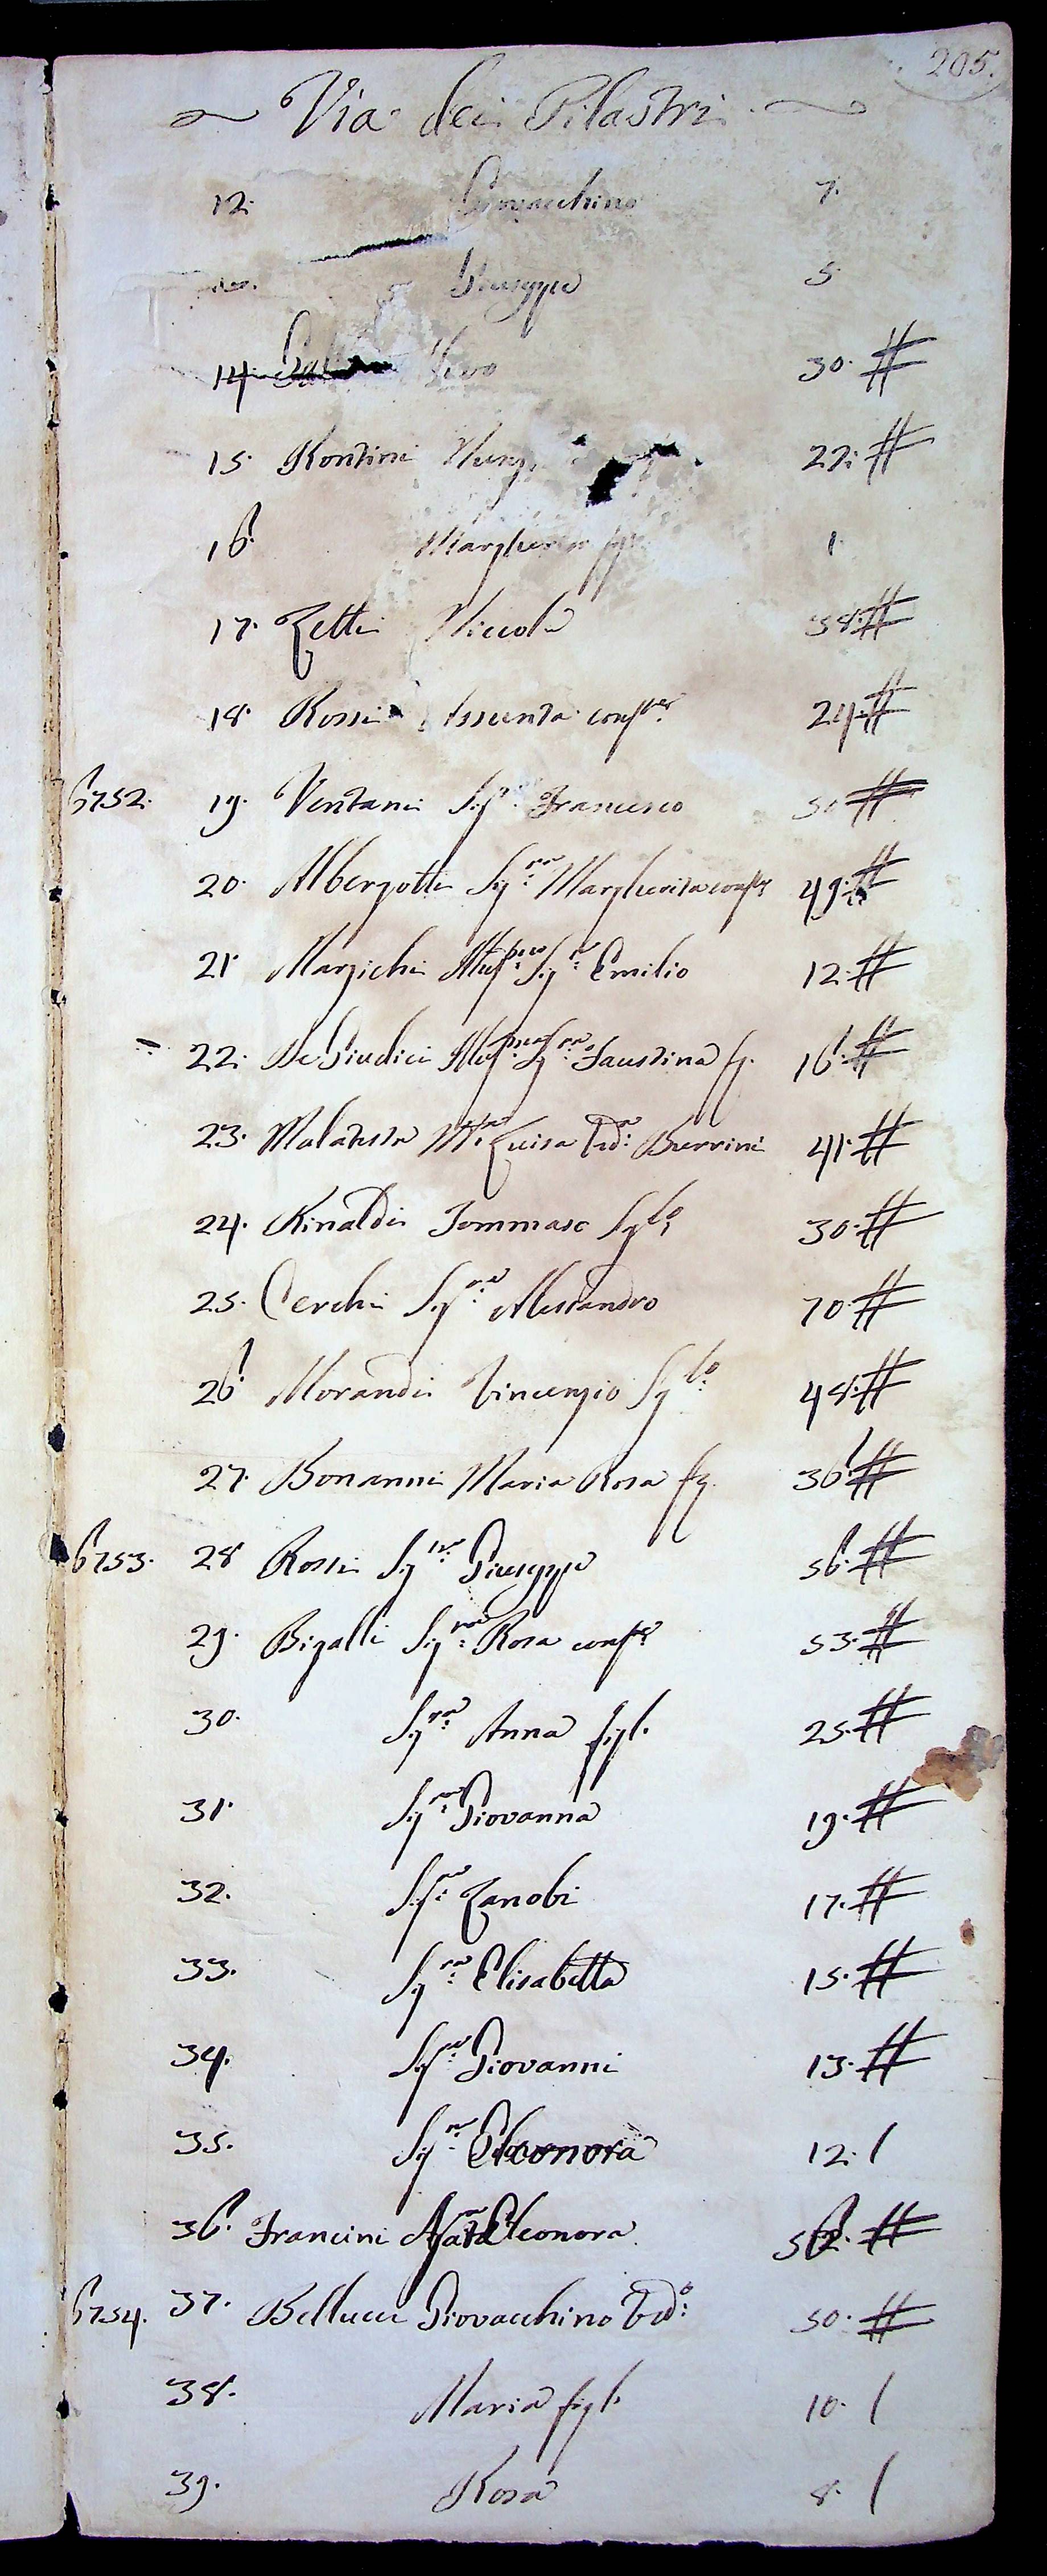 205.
Via dei Pilastri
12. Giovacchino 7.
Giuseppe 5
14. 30. #
15. Rontini Nunz 22. #
16. Margherita fig. 1.
17. Zetti Niccola 38. #
18. Rossi Assunta conser. 24. #
6752. 19. Ventani Sigr. Francesco #
20. Albergotti Sigra. Margherita conser. 49. #
21. Marzichi Sigr. Emilio 12. #
22. De Giudici Sigra. Faustina fg. 16. #
23. Malatesta Ma. Luisa Vda. Burrini 41. #
24. Rinaldi Tommaso Sglo. 30. #
25. Cerchi Sigre. Alessandro 70. #
26. Morandi Vincenzio Sglo. 48. #
27. Bonanni Maria Rosa fg. 36. #
6753. 28 Rossi Sigr. Giuseppe 56. #
29. Bigalli Sigra. Rosa conser. 53. #
30. Sigra. Anna figl. 25. #
31. Sigra. Giovanna 19. #
32. Sigr. Zanobi 17. #
33. Sigra. Elisabetta 15. #
34. Sigr. Giovanni 13. #
35. Sigra. Eleonora 12. /
36. Francini Eleonora #
6754. 37. Bellucci Giovacchino Vdo. 50. #
38. Maria figl. 10. /
39. Rosa 8. /